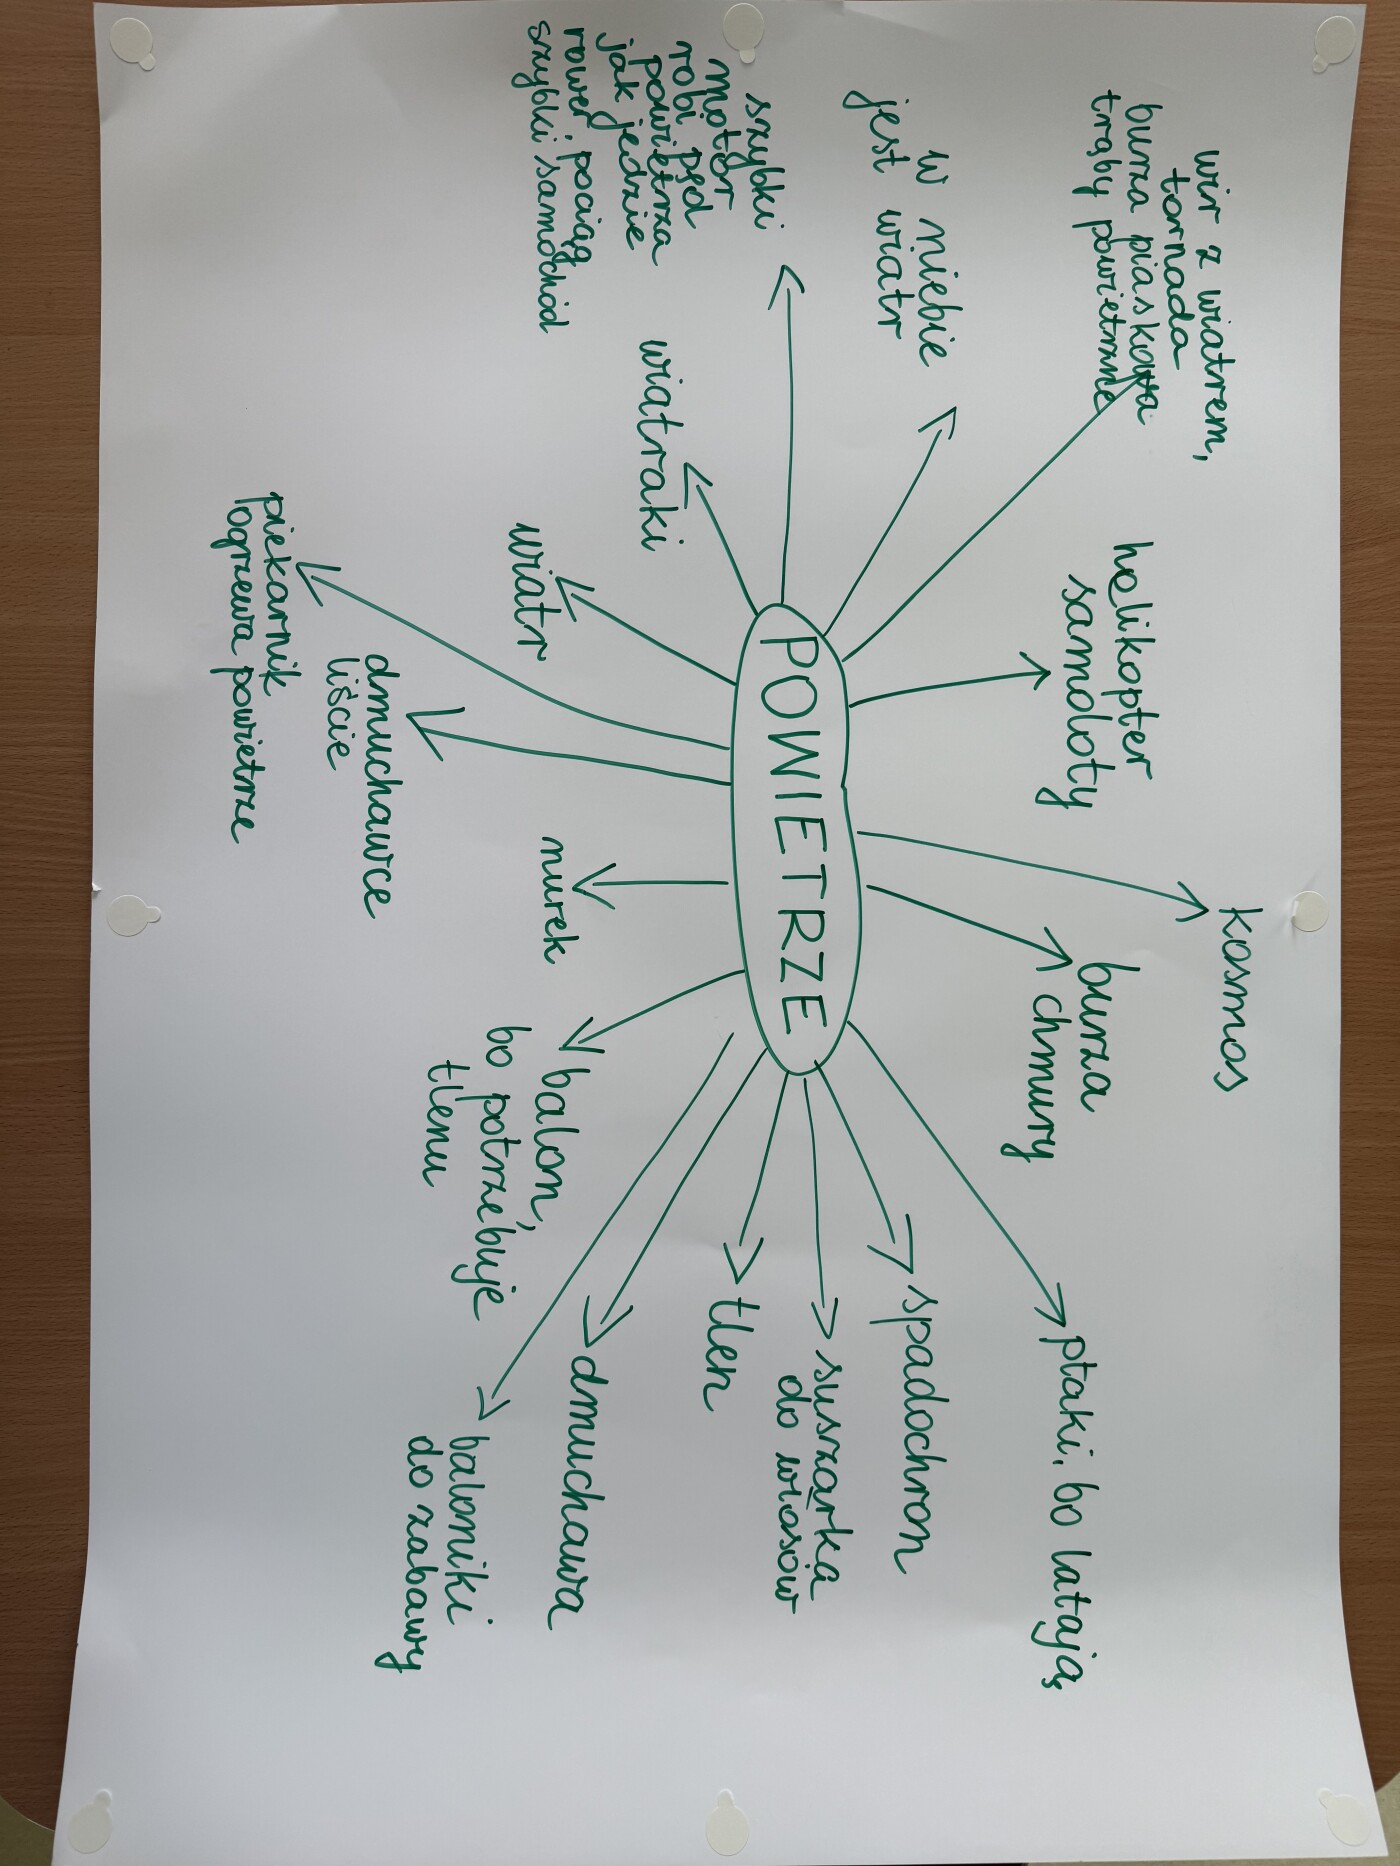 wir z wiatrem,
tornada
burza piaskowa
trąby powietrzne
helikopter
samoloty
kosmos
burza
chmury
ptaki, bo latają
w niebie
jest wiatr
szybki
motor
robi pęd
powietrza
jak jedzie
rower, pociąg
szybki samochód
POWIETRZE
spadochron
suszarka
do włosów
tlen
dmuchawa
baloniki
do zabawy
wiatraki
wiatr
nurek
balon,
bo potrzebuje
tlenu
dmuchawce
liście
piekarnik
ogrzewa powietrze